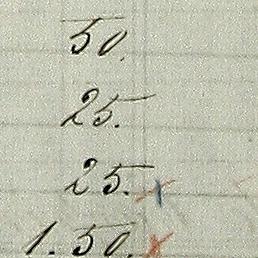 50.
25.
25. x
1.50. x